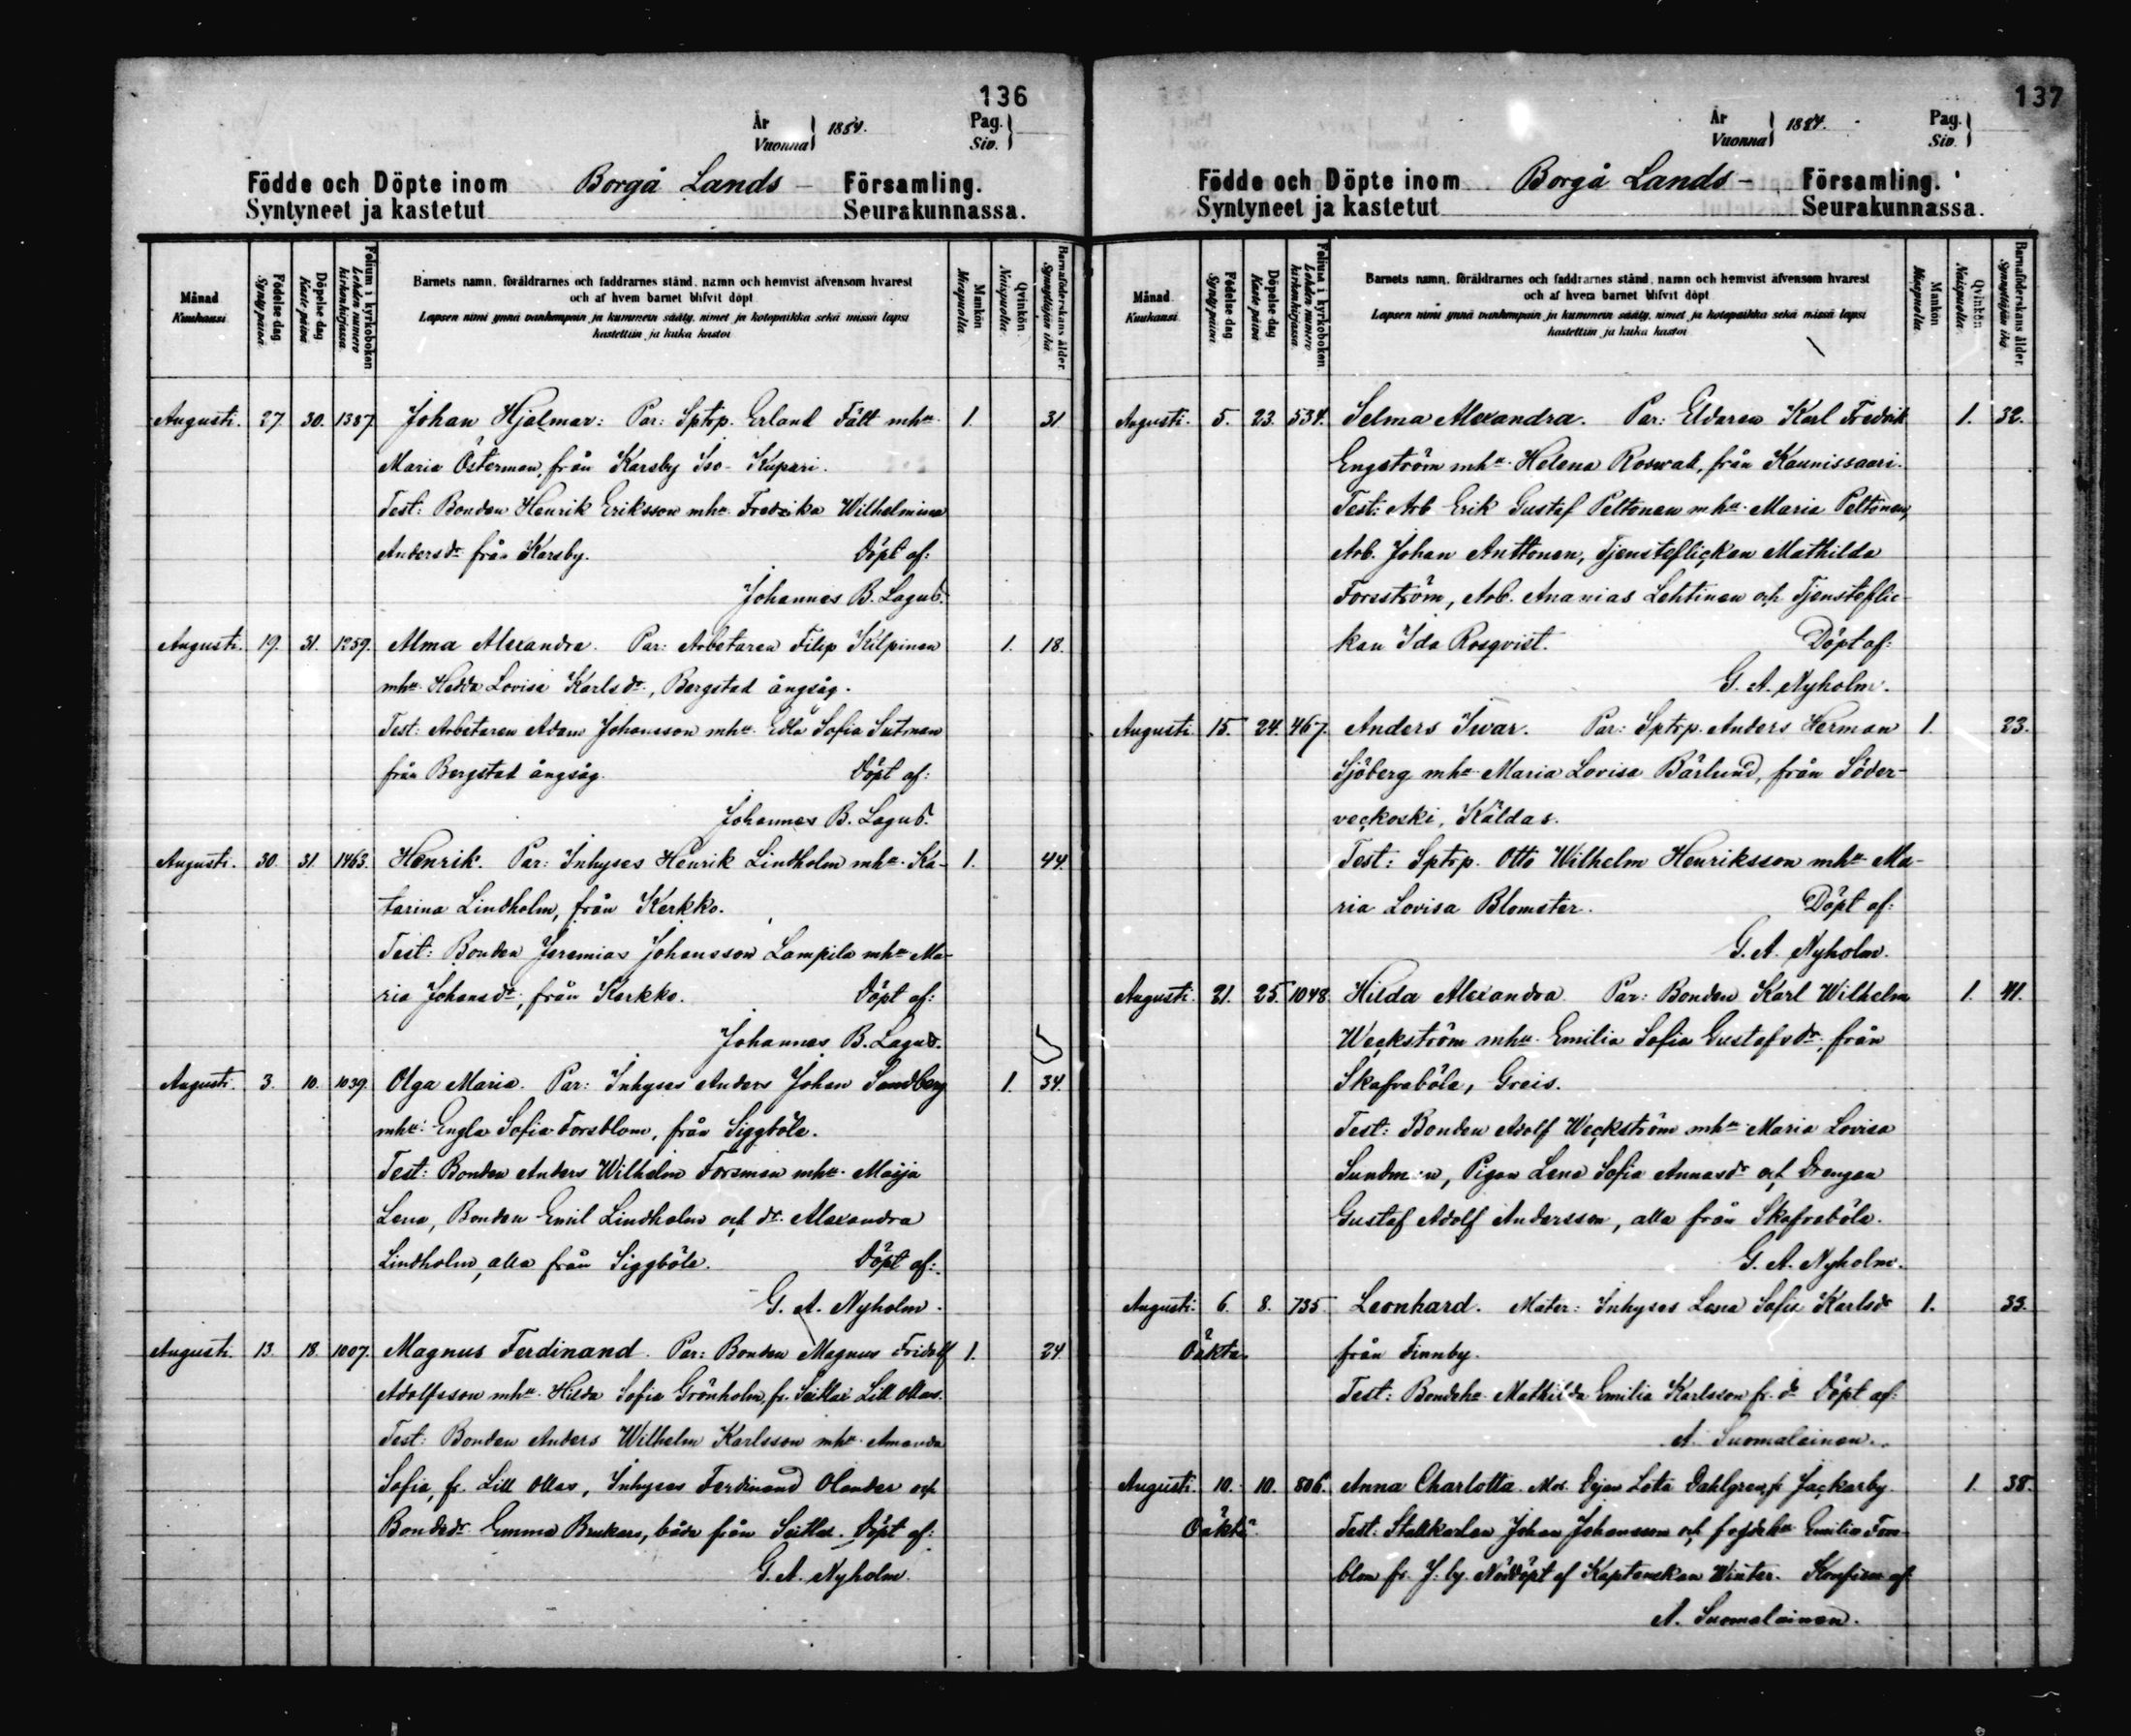 136
År
Vuonna
1884.
Pag.
Siv.
Födde och Döpte inom Borgå Lands- Församling.
Syntyneet ja kastetut Seurakunnassa.
Månad
Kuukausi
Födelsedag
Syntypäivä
Döpelsedag
Kastepäivä
Folium i kyrkoboken
Lehden numero kirkonkirjassa.
Barnets namn, föräldrarnes och faddrarnes stånd, namn och hemvist äfvensom hvarest
och af hvem barnet blifvit döpt
Lapsen nimi ynnä vanhempain ja kummein sääty, nimet ja kotopaikka sekä missä lapsi
kastettiin ja kuka kastoi
Mankön
Miespuolia.
Qvinkön
Naispuolia.
Barnaföderskans ålder.
Synnyttäjän ikä.
Augusti. 27. 30. 1387. Johan Hjalmar: Par: Sptrp. Erland Fält mhu. 1. 31
Maria Österman, från Karsby Iso-Kupari.
Test: Bonden Henrik Eriksson mhu. Fredrika Wilhelmina
Andersdr från Karsby. Döpt af:
Johannes B. Lagus.
Augusti. 19. 31. 1259. Alma Alexandra. Par: Arbetaren Filip Kilpinen 1. 18.
mhu. Hedda Lovisa Karlsdr., Bergstad ångsåg.
Test: Arbetaren Adam Johansson mhu. Edla Sofia Sutman
från Bergstad ångsåg. Döpt af:
Johannes B. Lagus.
Augusti. 30. 31. 1463. Henrik. Par: Inhyses Henrik Lindholm mhu. Ka- 1. 44.
tarina Lindholm, från Kerkko.
Test: Bonden Jeremias Johansson Lampila mhu Ma-
ria Johansdr., från Kerkko. Döpt af:
Johannes B. Lagus.
Augusti. 3. 10. 1039. Olga Maria. Par: Inhyses Anders Johan Sandberg 1. 34.
mhu. Engla Sofia Forsblom, från Siggböle.
Test: Bonden Anders Wilhelm Forsman mhu. Maija
Lena, Bonden Emil Lindholm och dr. Alexandra
Lindholm, alla från Siggböle. Döpt af:
G. A. Nyholm.
Augusti. 13. 18. 1007. Magnus Ferdinand. Par: Bonden Magnus Fridolf 1. 24.
Adolfsson mhu. Hilda Sofia Grönholm, fr. Seitlax Lill Ollas.
Test: Bonden Anders Wilhelm Karlsson mhu. Amanda
Sofia, fr. Lill Ollas, Inhyses Ferdinand Olander och
Bondedr. Emma, båda från Seitlax. Döpt af:
G. A. Nyholm.
137
År
Vuonna
1884.
Pag.
Siv.
Födde och Döpte inom Borgå Lands- Församling.
Syntyneet ja kastetut Seurakunnassa.
Månad
Kuukausi
Födelsedag
Syntypäivä
Döpelsedag
Kastepäivä
Folium i kyrkoboken
Lehden numero kirkonkirjassa.
Barnets namn, föräldrarnes och faddrarnes stånd, namn och hemvist äfvensom hvarest
och af hvem barnet blifvit döpt
Lapsen nimi ynnä vanhempain ja kummein sääty, nimet ja kotopaikka sekä missä lapsi
kastettiin ja kuka kastoi
Mankön
Miespuolia.
Qvinkön
Naispuolia.
Barnaföderskans ålder.
Synnyttäjän ikä.
Augusti. 5. 23. 534. Selma Alexandra. Par: Eldaren Karl Fredrik 1. 32.
Engström mhu. Helena Roswall, från Kaunissaari.
Test: Arb. Erik Gustaf Peltonen mhu. Maria Peltonen,
Arb. Johan Anttonen, Tjensteflickan Mathilda
Forsström, Arb. Ananias Lehtinen och Tjensteflic-
kan Ida Rosqvist. Döpt af:
G. A. Nyholm.
Augusti. 15. 24. 467. Anders Iwar. Par: Sptrp. Anders Herman 1. 23.
Sjöberg mhu. Maria Lovisa Bärlund, från Söder-
veckoski, Käldas.
Test: Sptrp. Otto Wilhelm Henriksson mhu. Ma-
ria Lovisa Blomster. Döpt af:
G. A. Nyholm.
Augusti. 21. 25. 1048. Hilda Alexandra. Par: Bonden Karl Wilhelm 1. 41.
Weckström mhu. Emilia Sofia Gustafsdr, från
Skafraböle, Greis.
Test: Bonden Adolf Weckström mhu. Maria Lovisa
Sundman, Pigan Lena Sofia Annasdr och Drengen
Gustaf Adolf Andersson, alla från Skafraböle.
G. A. Nyholm.
Augusti. 6. 8. 735. Leonhard. Mater: Inhyses Lena Sofia Karlsdr 1. 33.
Oäkta. från Finnby.
Test: Bondehu. Mathilda Emilia Karlsson fr. do Döpt af:
A. Suomalainen.
Augusti. 10. 10. 806. Anna Charlotta. Mor. Dejan Lota Dahlgren, fr Jackarby. 1. 38.
Oäkta. Test: Stallkarlen Johan Johansson och fogdehu Emilia Fors-
blom fr. J. by. Nöddöpt af Kaptenskan Winter. Konfirm. af
A. Suomalainen.